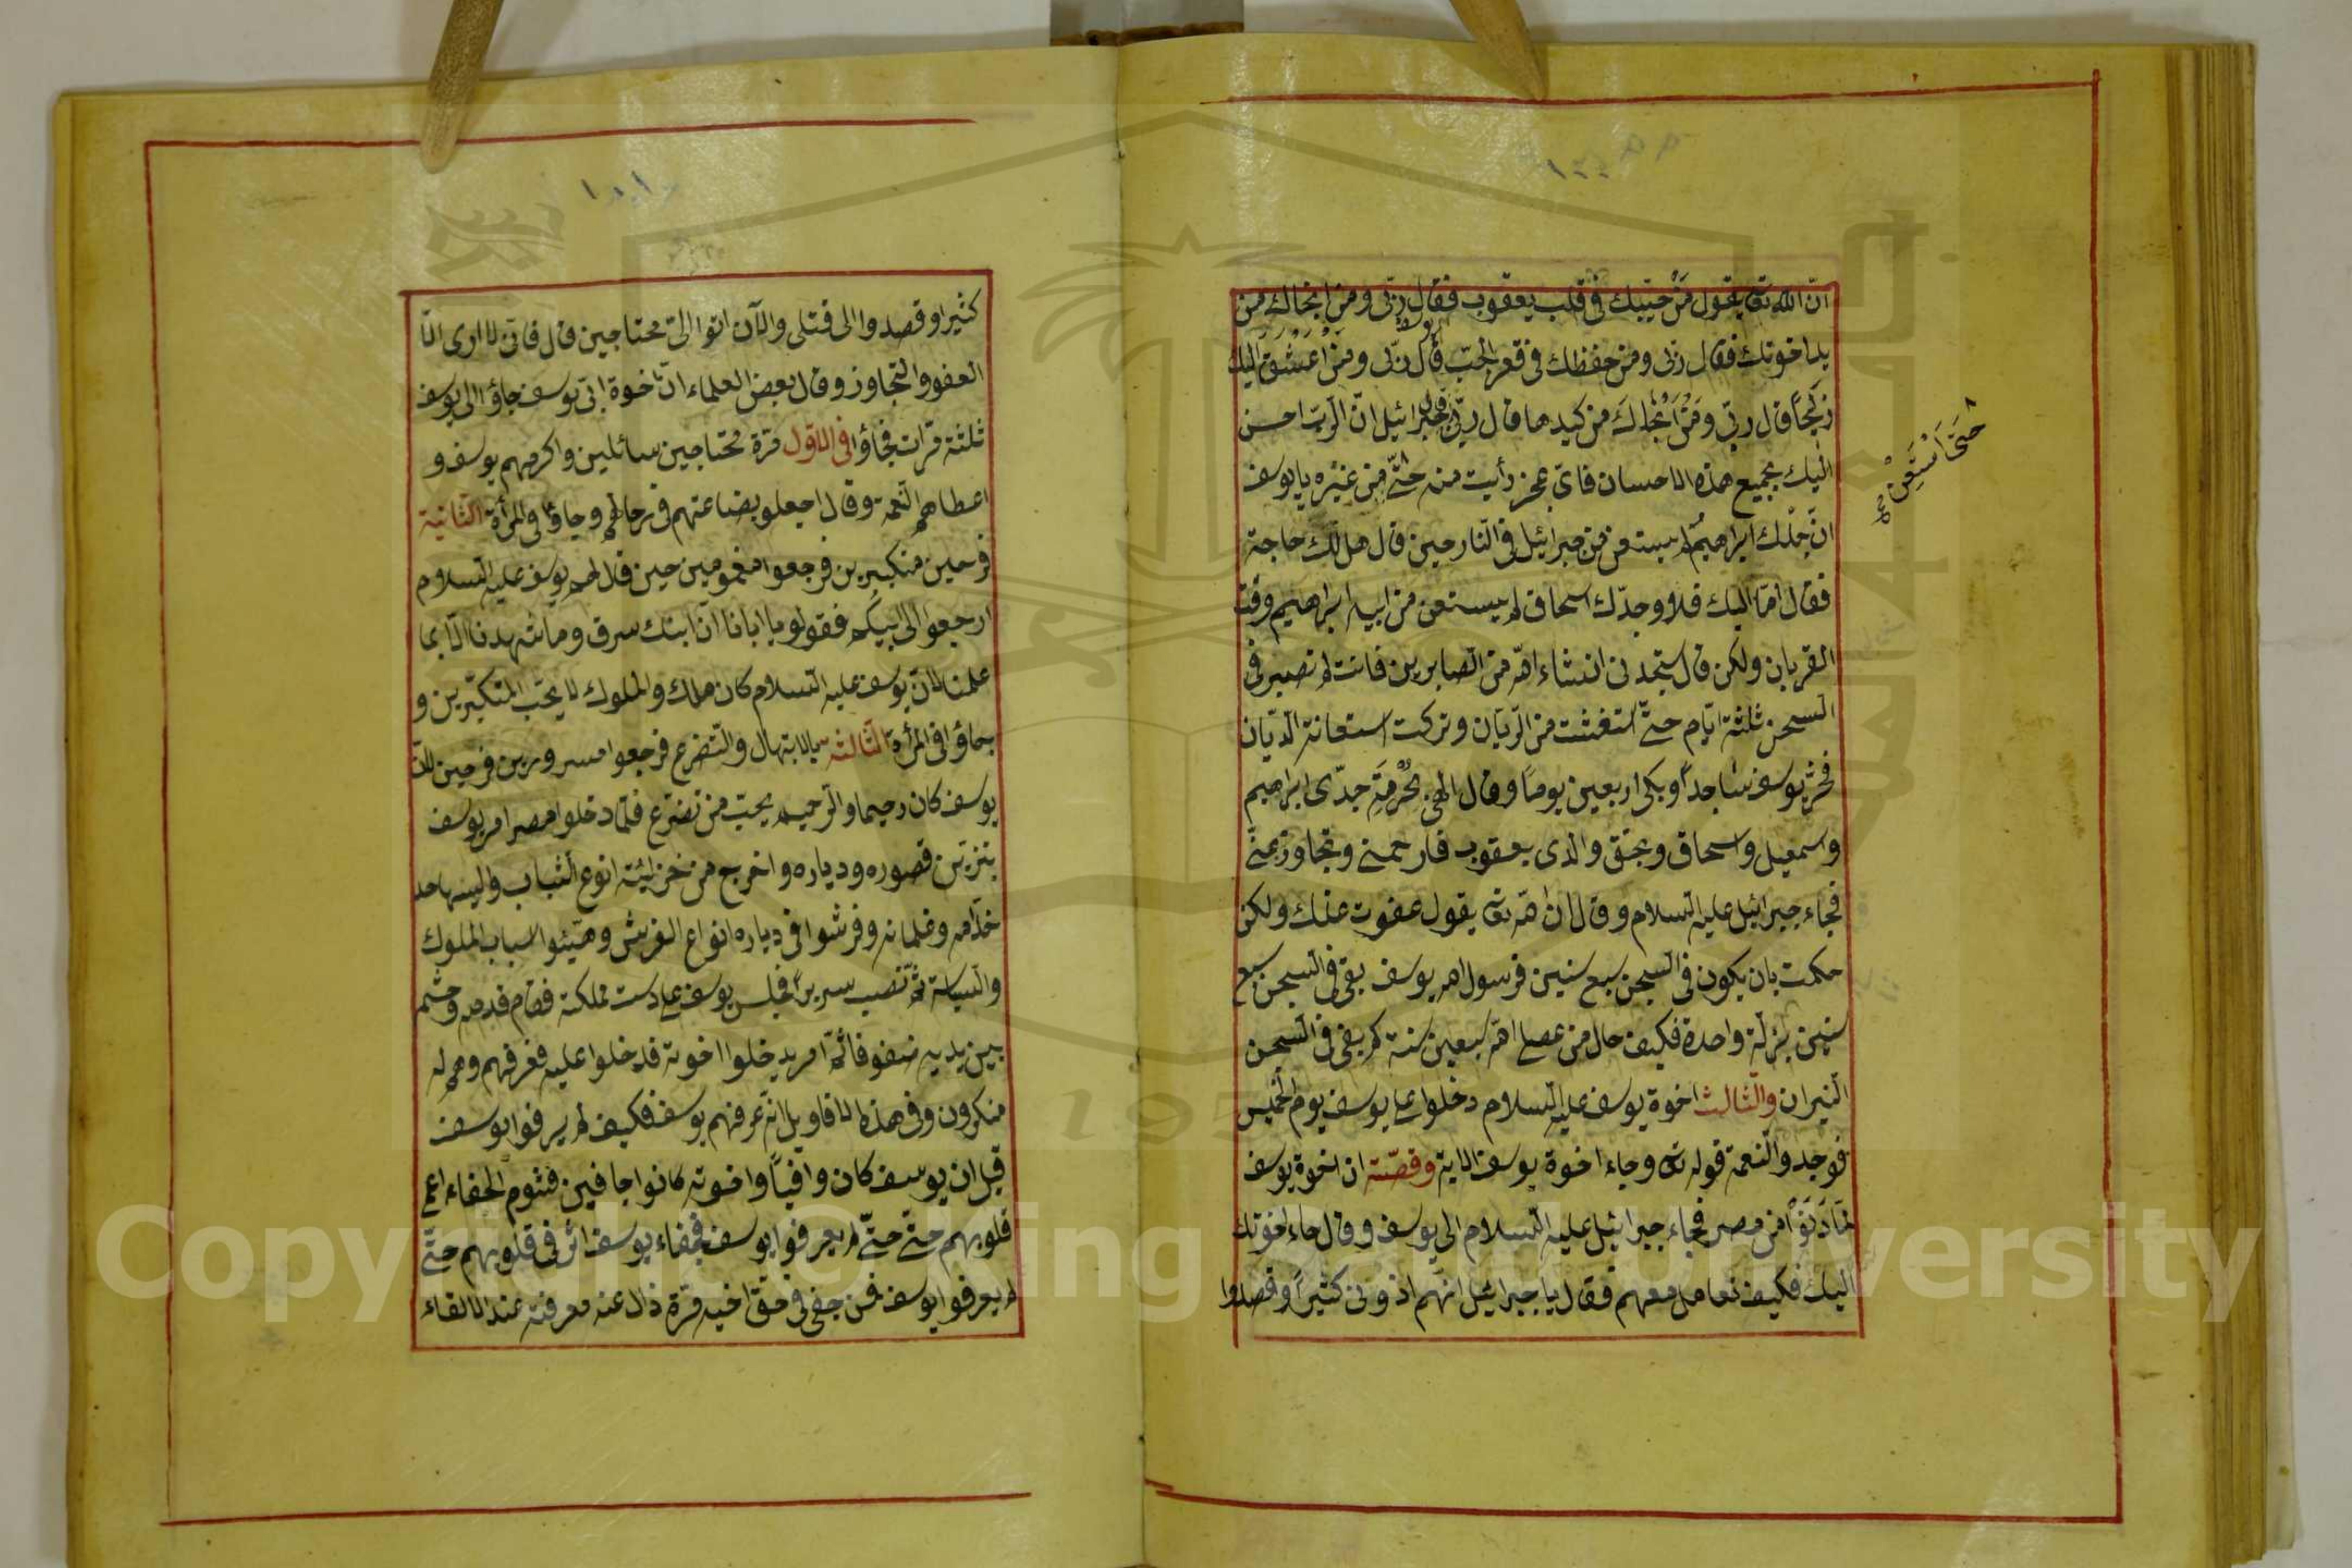 انّ الله تعا يقول مَنْ حبّبك فى قلب يعقوب فقال ربّى ومن انجاك من
يد اخوتك فقال ربّى ومن حفظك فى قعر الجبّ قال ربّى ومَنْ اَعْشَقَ اليك
زليخا قال ربّى ومَنْ اَنْجاكَ من كيدها قال ربّى قال جبرائيل انّ الربّ احسن
اليك بجميع هذه الاحسان فاىّ عجز رأيت منه حتّى من غيره يا يوسف
حَتَّى اَسْتَعِنْ صح
انّ جدّك ابراهيم لم يستعن من جبرائيل فى النار حين قال هل لك حاجة
فقال امّا اليك فلا وجدّك اسحاق لم يستعن من ابيه ابراهيم وقت
القربان ولكن قال ستجدنى انشاء الله من الصابرين فانت لم تصبر فى
السجن ثلثة ايّام حتّى استغثت من الريّان وتركت استعانة الديّان
فخرّ يوسف ساجداً وبكى اربعين يوماً وقال الهى بحُرْمَةِ جدّى ابراهيم
واسمعيل واسحاق وبحق والدى يعقوب فارحمنى وتجاوز عنّى
فجاء جبرائيل عليه السلام وقال ان الله تعا يقول عفوت عنك ولكن
حكمت بان يكون فى السجن سبع سنين فرسول الله يوسف بقى فى السجن سبع
سنين بزلّة واحدة فكيف حال من عصى الله سبعين سنة كم بقى فى السجن
النيران والثالث اخوة يوسف عليه السلام دخلوا على يوسف يوم الخميس
فوجدوا النعمة قوله تعا وجاء اخوة يوسف الاية وقصّته ان اخوة يوسف
لمّا دَنَوْا من مصر فجاء جبرائيل عليه السلام الى يوسف وقال جاء اخوتك
اليك فكيف تعامل معهم فقال يا جبرائيل انهم اذونى كثيراً وقصدوا
كثيرا وقصدوا الى قتلى والآن اتوا الىّ محتاجين قال فانّى لا ارى الّا
العفو والتجاوز وقال بعض العلماء انّ اخوة ابى يوسف جاؤا الى يوسف
ثلثة مرّات فجاؤا فى الاوّل مرّة محتاجين سائلين واكرمهم يوسف و
اعطاهم النعمة وقال اجعلو بضاعتهم فى رحالهم وجاؤا فى المرّة الثانية
فرحين متكبّرين فرجعوا مغمومين حين قال لهم يوسف عليه السلام
ارجعوا الى ابيكم فقولو يا ابانا انّ ابنك سرق وما شهدنا الّا بما
علمنا لانّ يوسف عليه السلام كان ملك والملوك لا يحبّ المتكبّرين و
جاؤا فى المرّة الثالثة بالابتهال والتضرع فرجعوا مسرورين فرحين لانّ
يوسف كان رحيما والرحيم يحبّ من تضرع فلمّا دخلوا مصر امر يوسف
بتزيين قصوره ودياره واخرج من خزائنه انوع الثياب والبسها حد
خدّامه وغلمانه وفرشوا فى دياره انواع الفرش وهيّئوا اسباب الملوك
والسياسة ثم نصب سريراً فجلس يوسف على دست مملكته فقام قدمه وحشمه
بين يديه صفو فائمة امر يدخلوا اخوته فدخلوا عليه فعرفهم وهم له
منكرون وفى هذه الاقاويل انّه عرفهم يوسف فكيف لم يرفوا يوسف
قيل ان يوسف كان وافياً واخوته كانوا جافين فشوم الجفاء اعمى
قلوبهم حتّى حتّى لم يعرفوا يوسف فجفاء يوسف اثر فى قلوبهم حتّى
لم يعرفوا يوسف فمن جفى فى حقّ اخيه مرّة ذال عنه معرفته عند لالقاء